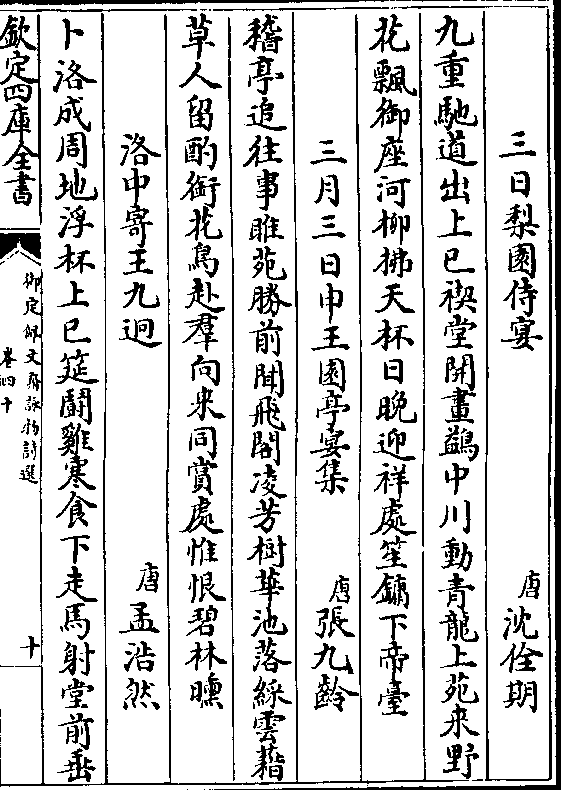 三日梨園侍宴　唐沈佺期
九重馳道出上巳禊堂開畫鷁中川動青龍上苑来野
花飄御座河柳拂天杯日晚迎祥處笙鏞下帝臺
三月三日申王園亭宴集　唐張九齡
稽亭追往事睢苑勝前聞飛閣凌芳樹華池落綵雲藉
草人留酌銜花鳥赴羣向來同賞處惟恨碧林曛
洛中寄王九迥　唐孟浩然
卜洛成周地浮杯上巳筵鬭雞寒食下走馬射堂前垂
欽定四庫全書
御定佩文齋詠物詩選
卷四十
十